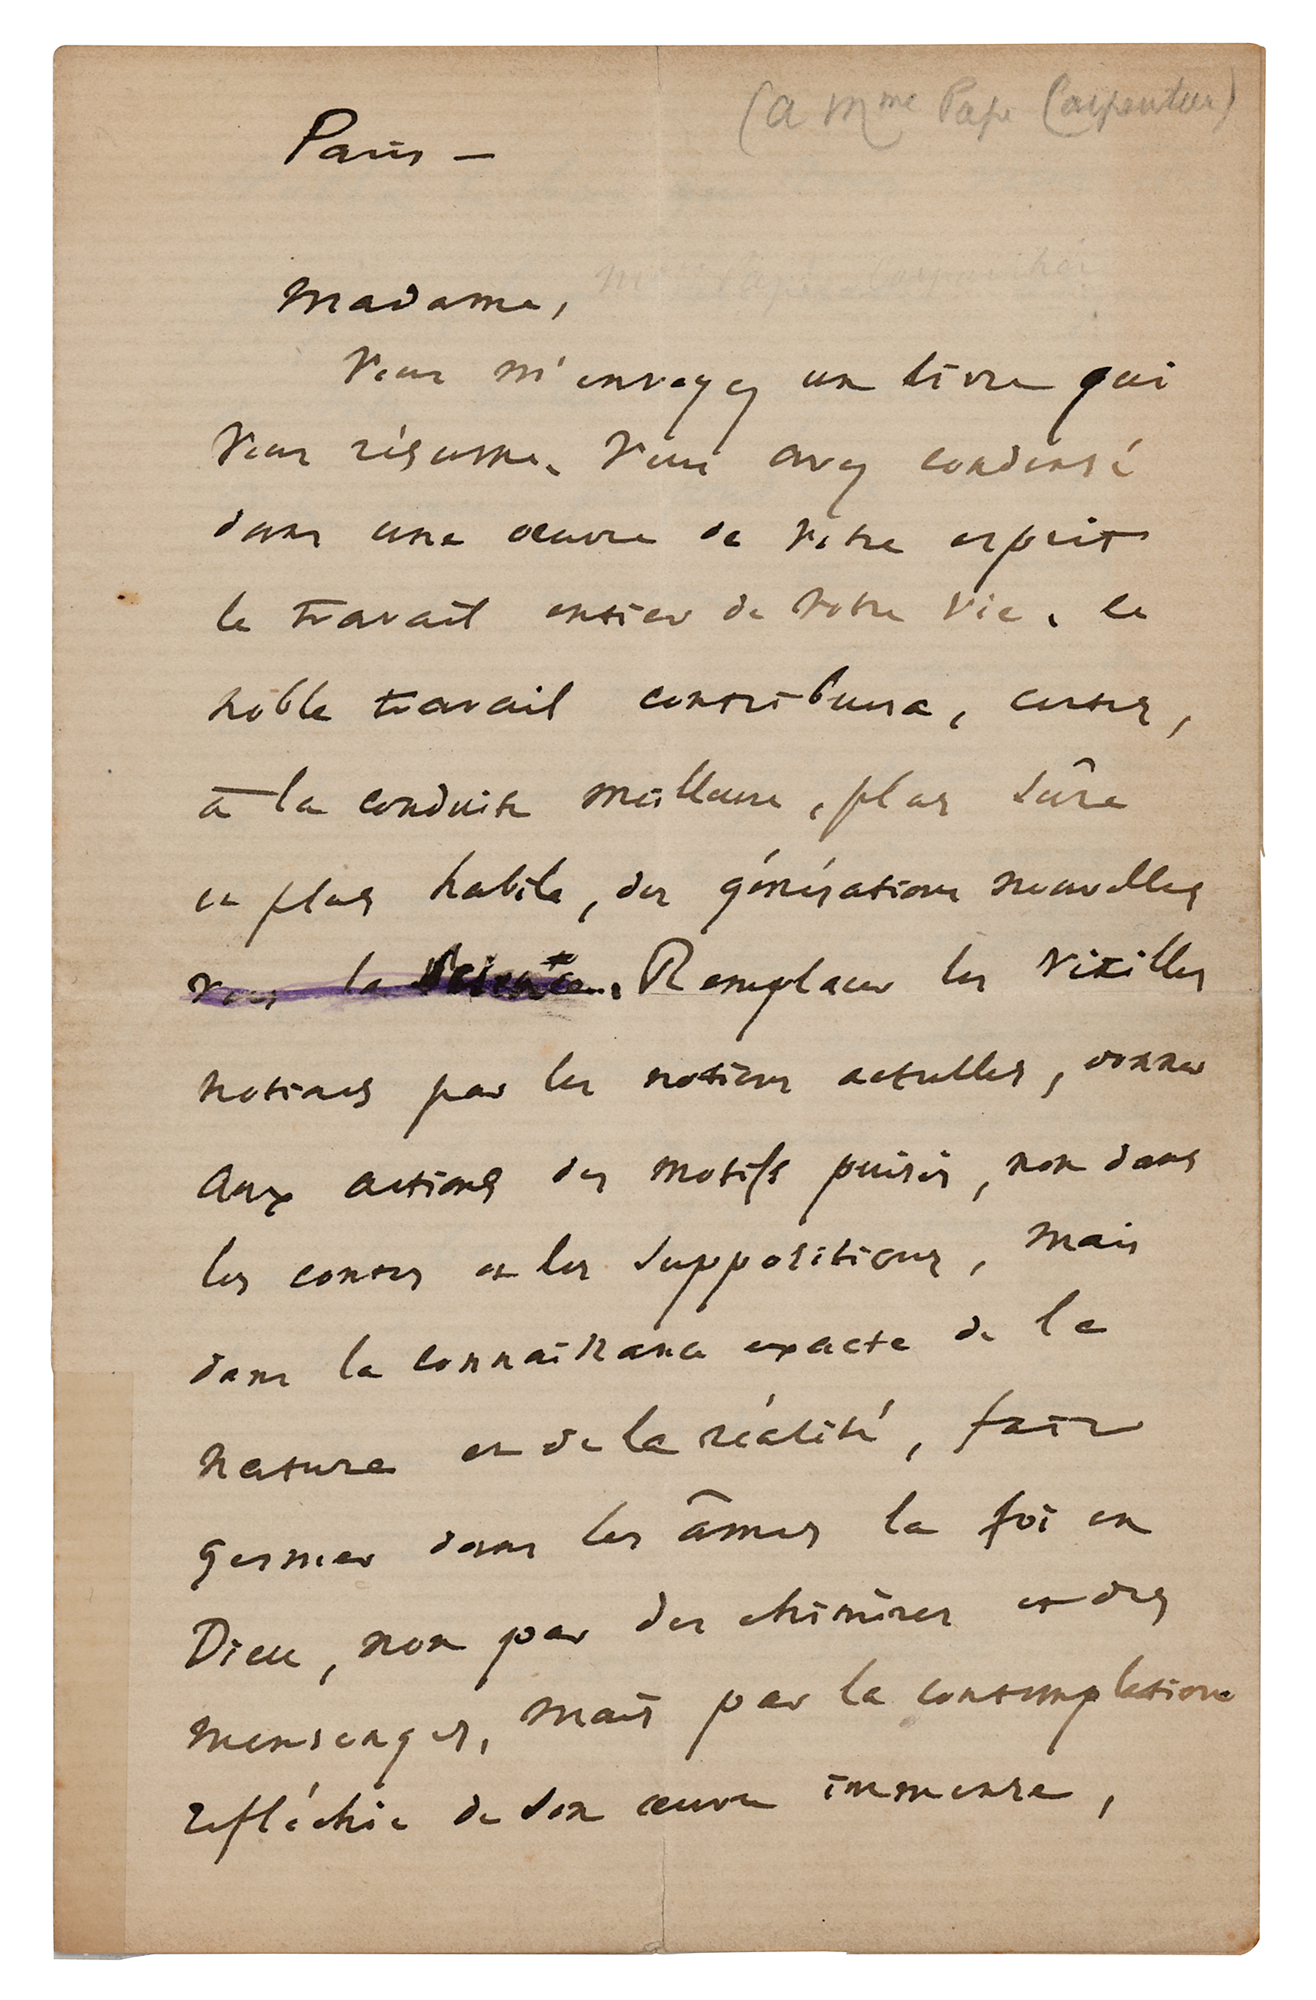 (a Mme Pape Carpentier)
Paris —
Madame,
Vous m'envoyez un livre qui
vous résume. Vous avez condensé
dans une œuvre de votre esprit
le travail entier de votre vie. Ce
noble travail contribuera, certes,
à la conduite meilleure, plus sûre
et plus habile, des générations nouvelles
vers la Science. Remplacer les vieilles
notions par les notions actuelles, donner
aux actions des motifs puisés, non dans
les contes et les suppositions, mais
dans la connaissance exacte de la
nature et de la réalité, faire
germer dans les âmes la foi en
Dieu, non par des chimères et des
mensonges, mais par la contemplation
réfléchie de son œuvre immense,